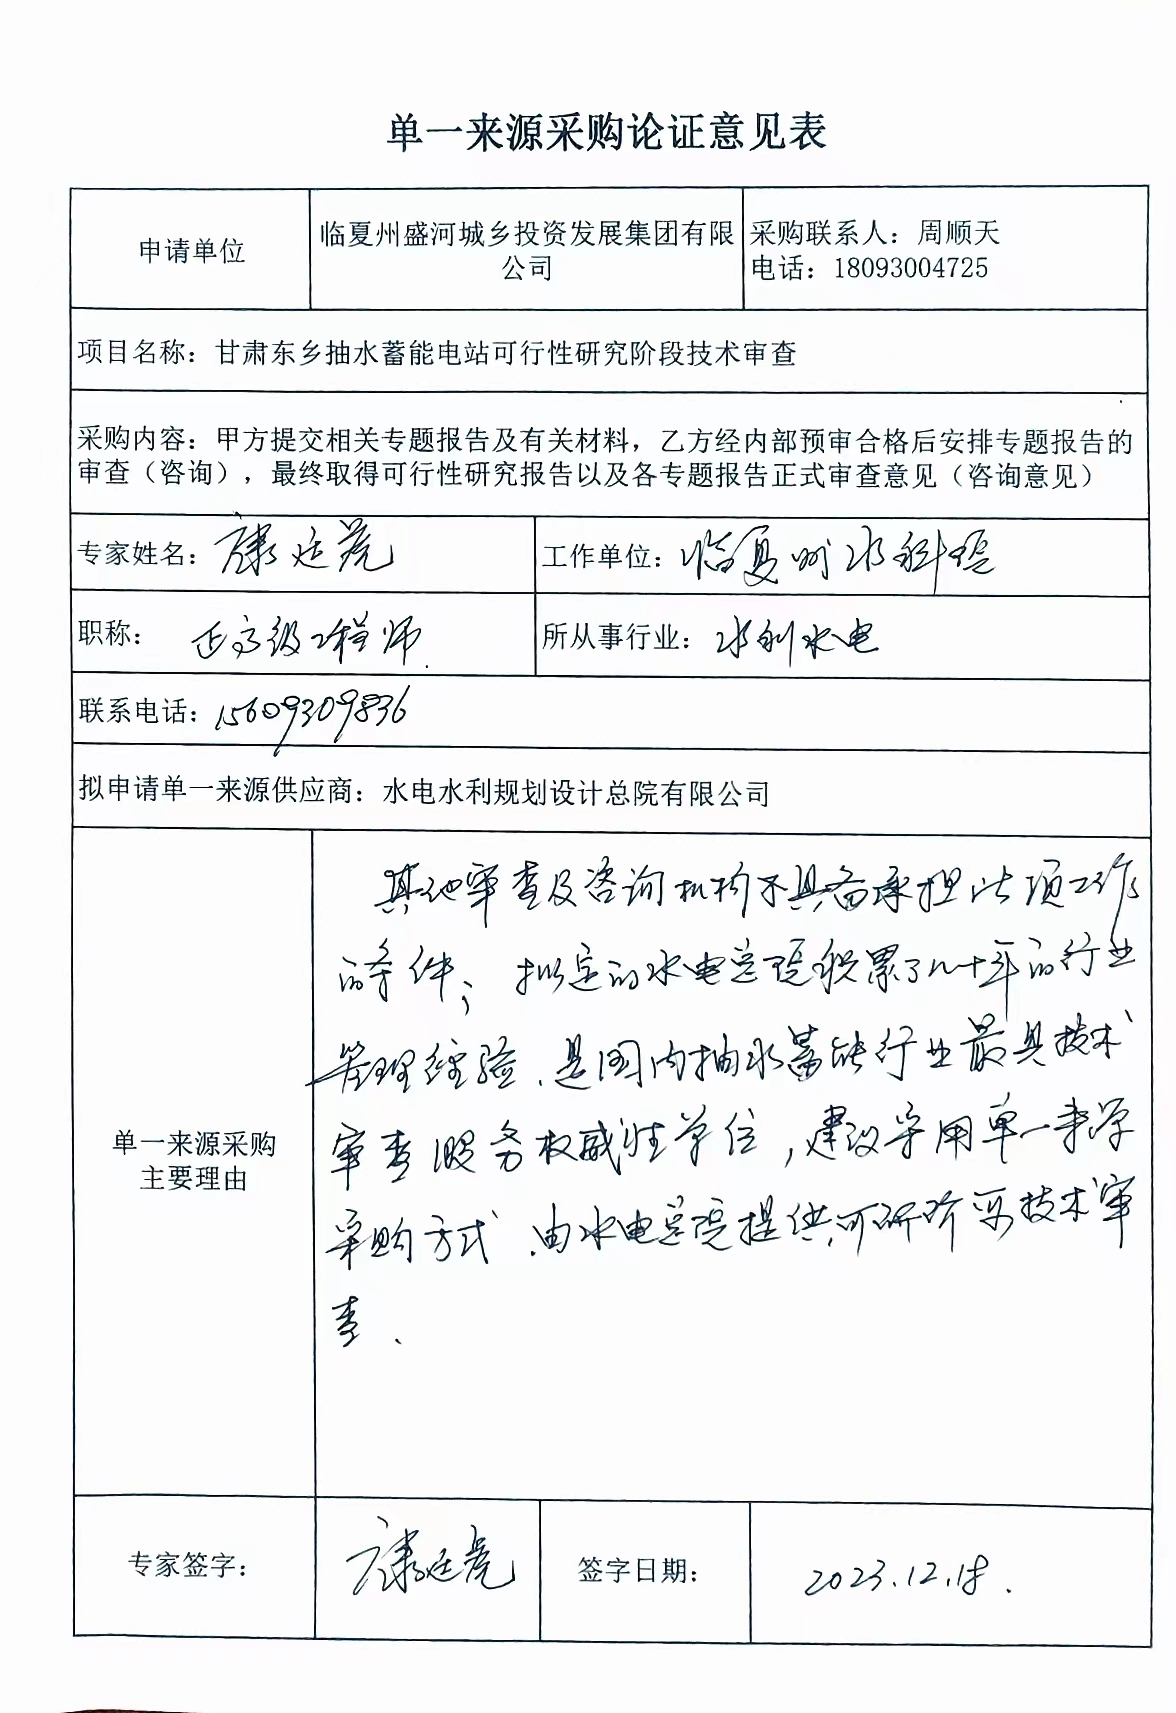 单一来源采购论证意见表
申请单位
临夏州盛河城乡投资发展集团有限
公司
采购联系人：周顺天
电话：18093004725
项目名称：甘肃东乡抽水蓄能电站可行性研究阶段技术审查
采购内容：甲方提交相关专题报告及有关材料，乙方经内部预审合格后安排专题报告的
审查（咨询），最终取得可行性研究报告以及各专题报告正式审查意见（咨询意见）
专家姓名：康廷
工作单位：临夏州水科院
职称：正高级工程师.
所从事行业：水利水电
联系电话：15609309836
拟申请单一来源供应商：水电水利规划设计总院有限公司
单一来源采购
主要理由
其他审查及咨询机构不具备承担此项工作
的条件；拟定的水电总院积累了几十年的行业
管理经验、是国内抽水蓄能行业最具技术
审查服务权威性单位，建议采用单一来源
采购方式、由水电总院提供可研阶段技术审
查、
专家签字：
康廷
签字日期：
2023.12.18.